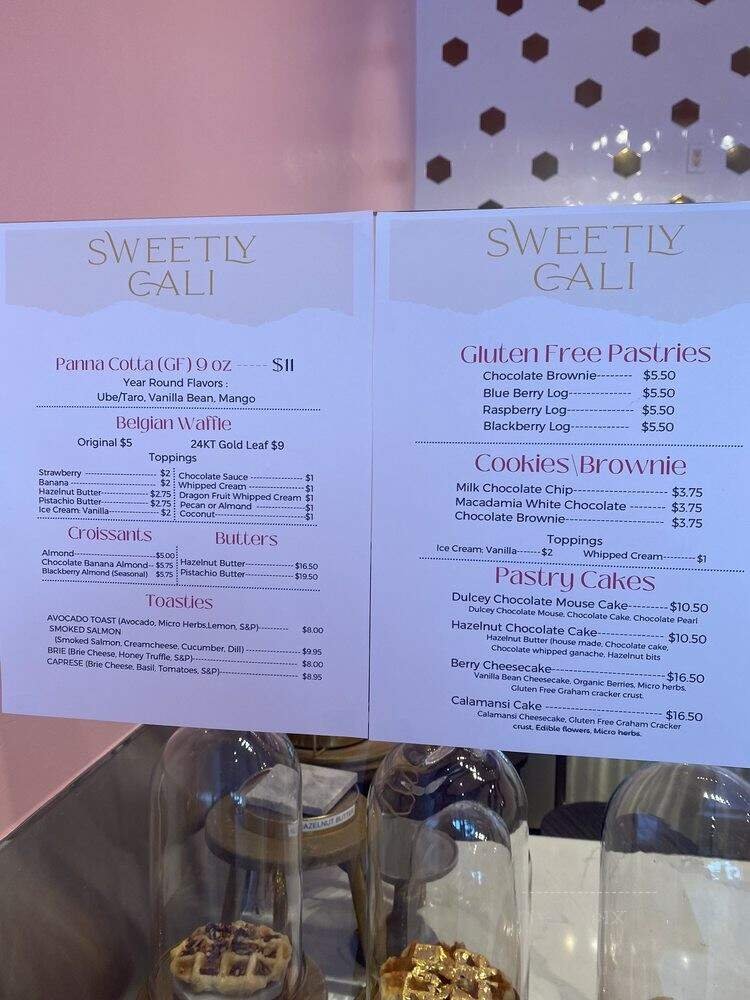 SWEETLY
CALI
Panna Cotta (GF) 9 oz ----- $11
Year Round Flavors :
Ube/Taro, Vanilla Bean, Mango
Belgian Waffle
Original $5 24KT Gold Leaf $9
Toppings
Strawberry ------------------- $2
Banana ---------------------- $2
Hazelnut Butter------------- $2.75
Pistachio Butter------------- $2.75
Ice Cream: Vanilla------------ $2
Chocolate Sauce --------------- $1
Whipped Cream --------------- $1
Dragon Fruit Whipped Cream $1
Pecan or Almond ------------- $1
Coconut----------------------$1
Croissants
Almond-------------------------$5.00
Chocolate Banana Almond-- $5.75
Blackberry Almond (Seasonal) $5.75
Butters
Hazelnut Butter--------------$16.50
Pistachio Butter--------------$19.50
Toasties
AVOCADO TOAST (Avocado, Micro Herbs,Lemon, S&P)-------- $8.00
SMOKED SALMON
(Smoked Salmon, Creamcheese, Cucumber, Dill) --------------------$9.95
BRIE (Brie Cheese, Honey Truffle, S&P)--------------------------- $8.00
CAPRESE (Brie Cheese, Basil, Tomatoes, S&P)--------------------- $8.95
SWEETLY
CALI
Gluten Free Pastries
Chocolate Brownie-------- $5.50
Blue Berry Log-------------- $5.50
Raspberry Log-------------- $5.50
Blackberry Log------------- $5.50
Cookies\Brownie
Milk Chocolate Chip--------------------- $3.75
Macadamia White Chocolate -------- $3.75
Chocolate Brownie---------------------- $3.75
Toppings
Ice Cream: Vanilla-------$2 Whipped Cream---------$1
Pastry Cakes
Dulcey Chocolate Mouse Cake---------$10.50
Dulcey Chocolate Mouse, Chocolate Cake, Chocolate Pearl
Hazelnut Chocolate Cake---------------$10.50
Hazelnut Butter (house made, Chocolate cake,
Chocolate whipped ganache, Hazelnut bits
Berry Cheesecake-------------------------$16.50
Vanilla Bean Cheesecake, Organic Berries, Micro herbs,
Gluten Free Graham cracker crust.
Calamansi Cake --------------------------$16.50
Calamansi Cheesecake, Gluten Free Graham Cracker
crust, Edible flowers, Micro herbs.